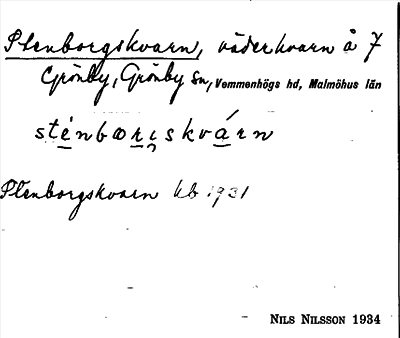 Stenborgskvarn, väderkvarn å 7
Grönby, Grönby sn, Vemmenhögs hd, Malmöhus län
sténborı̨skvárn
Stenborgskvarn kb 1931
NILS NILSSON 1934